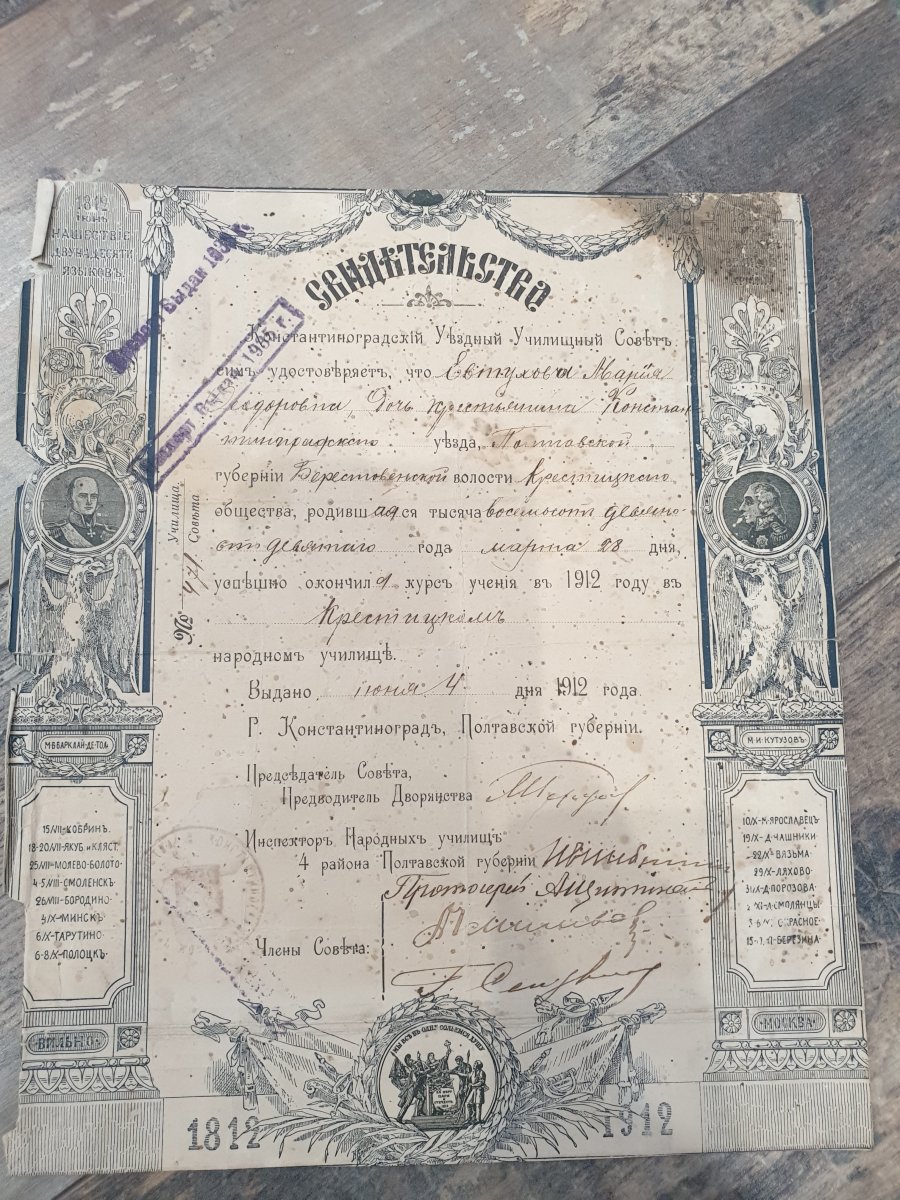 1812
НАШЕСТВІЕ
ДВУНАДЕСЯТИ
ЯЗЫКОВЪ
СВИДѢТЕЛЬСТВО
Паспорт Выдан 193
Паспорт Выдан 1935 г.
Константиноградскій Уѣздный Училищный Совѣтъ
симъ удостовѣряетъ, что Евтухова Марія
Ѳеодоровна дочь крестьянина Констан
тиноградскаго уѣзда, Полтавской
губерніи Берестовенской волости Крестицкаго
общества, родившаяся тысяча восемьсот девяно-
сто девятаго года марта 28 дня,
успѣшно окончила курс ученія въ 1912 году в
Крестицкомъ
народномъ училищѣ.
Училища.
Совѣта.
№ 471
Выдано іюня 4 дня 1912 года
Г. Константиноград, Полтавской губерніи.
Предсѣдатель Совѣта,
Предводитель Дворянства
Инспекторъ Народныхъ училищъ
4 района Полтавской губерніи
Протоіерей
Члены Совѣта:
М.Б.БАРКЛАЙ-ДЕ-ТОЛ
15/VII-КОБРИНЪ
18-20/VII-ЯКУБ. и КЛЯСТ.
25/VII-МОЛЕВО-БОЛОТО
4-5/VIII-СМОЛЕНСКЪ
26/VIII-БОРОДИНО
4/X-МИНСКЪ
6/X-ТАРУТИНО
6-8/X-ПОЛОЦКЪ
ВИЛЬНО
М.И.КУТУЗОВЪ
10/X-М-ЯРОСЛАВЕЦЪ
19/X-Д-ЧАШНИКИ
22/X-ВЯЗЬМА
29/X-ЛЯХОВО
Д.ПОРОЗОВА
СМОЛЯНЦЫ
КРАСНОЕ
БЕРЕЗИНА
МОСКВА
МЫ ВСѢ ВЪ ОДНУ СОЛЬЕМСЯ ДУШУ
1812
1912